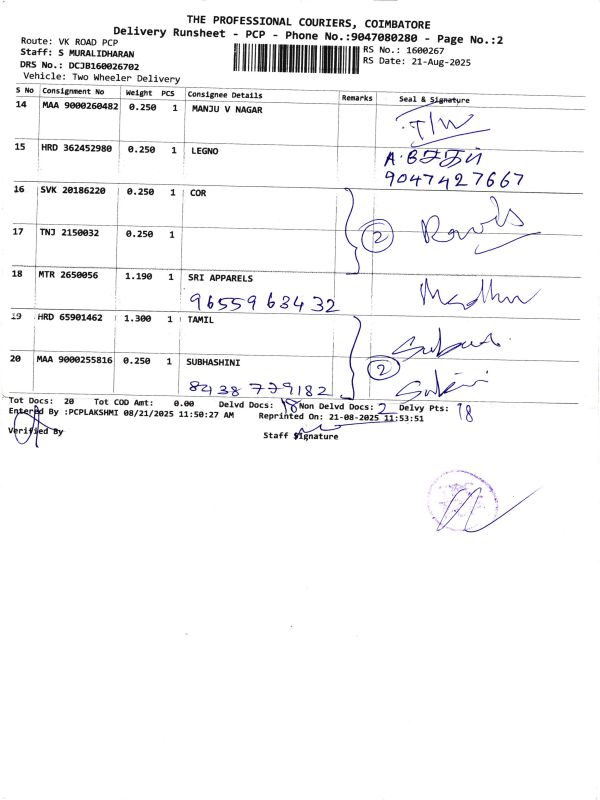 THE PROFESSIONAL COURIERS, COIMBATORE
Delivery Runsheet - PCP - Phone No.:9047080280 - Page No.:2
Route: VK ROAD PCP
Staff: S MURALIDHARAN
DRS No.: DCJB160026702
Vehicle: Two Wheeler Delivery
RS No.: 1600267
RS Date: 21-Aug-2025
S No Consignment No Weight PCS Consignee Details Remarks Seal & Signature
14 MAA 9000260482 0.250 1 MANJU V NAGAR
15 HRD 362452980 0.250 1 LEGNO
9047427667
16 SVK 20186220 0.250 1 COR
2
17 TNJ 2150032 0.250 1
18 MTR 2650056 1.190 1 SRI APPARELS
9655963432
19 HRD 65901462 1.300 1 TAMIL
2
20 MAA 9000255816 0.250 1 SUBHASHINI
8438779182
Tot Docs: 20 Tot COD Amt: 0.00 Delvd Docs: 18 Non Delvd Docs: 2 Delvy Pts: 18
Entered By :PCPLAKSHMI 08/21/2025 11:50:27 AM Reprinted On: 21-08-2025 11:53:51
Verified By
Staff Signature